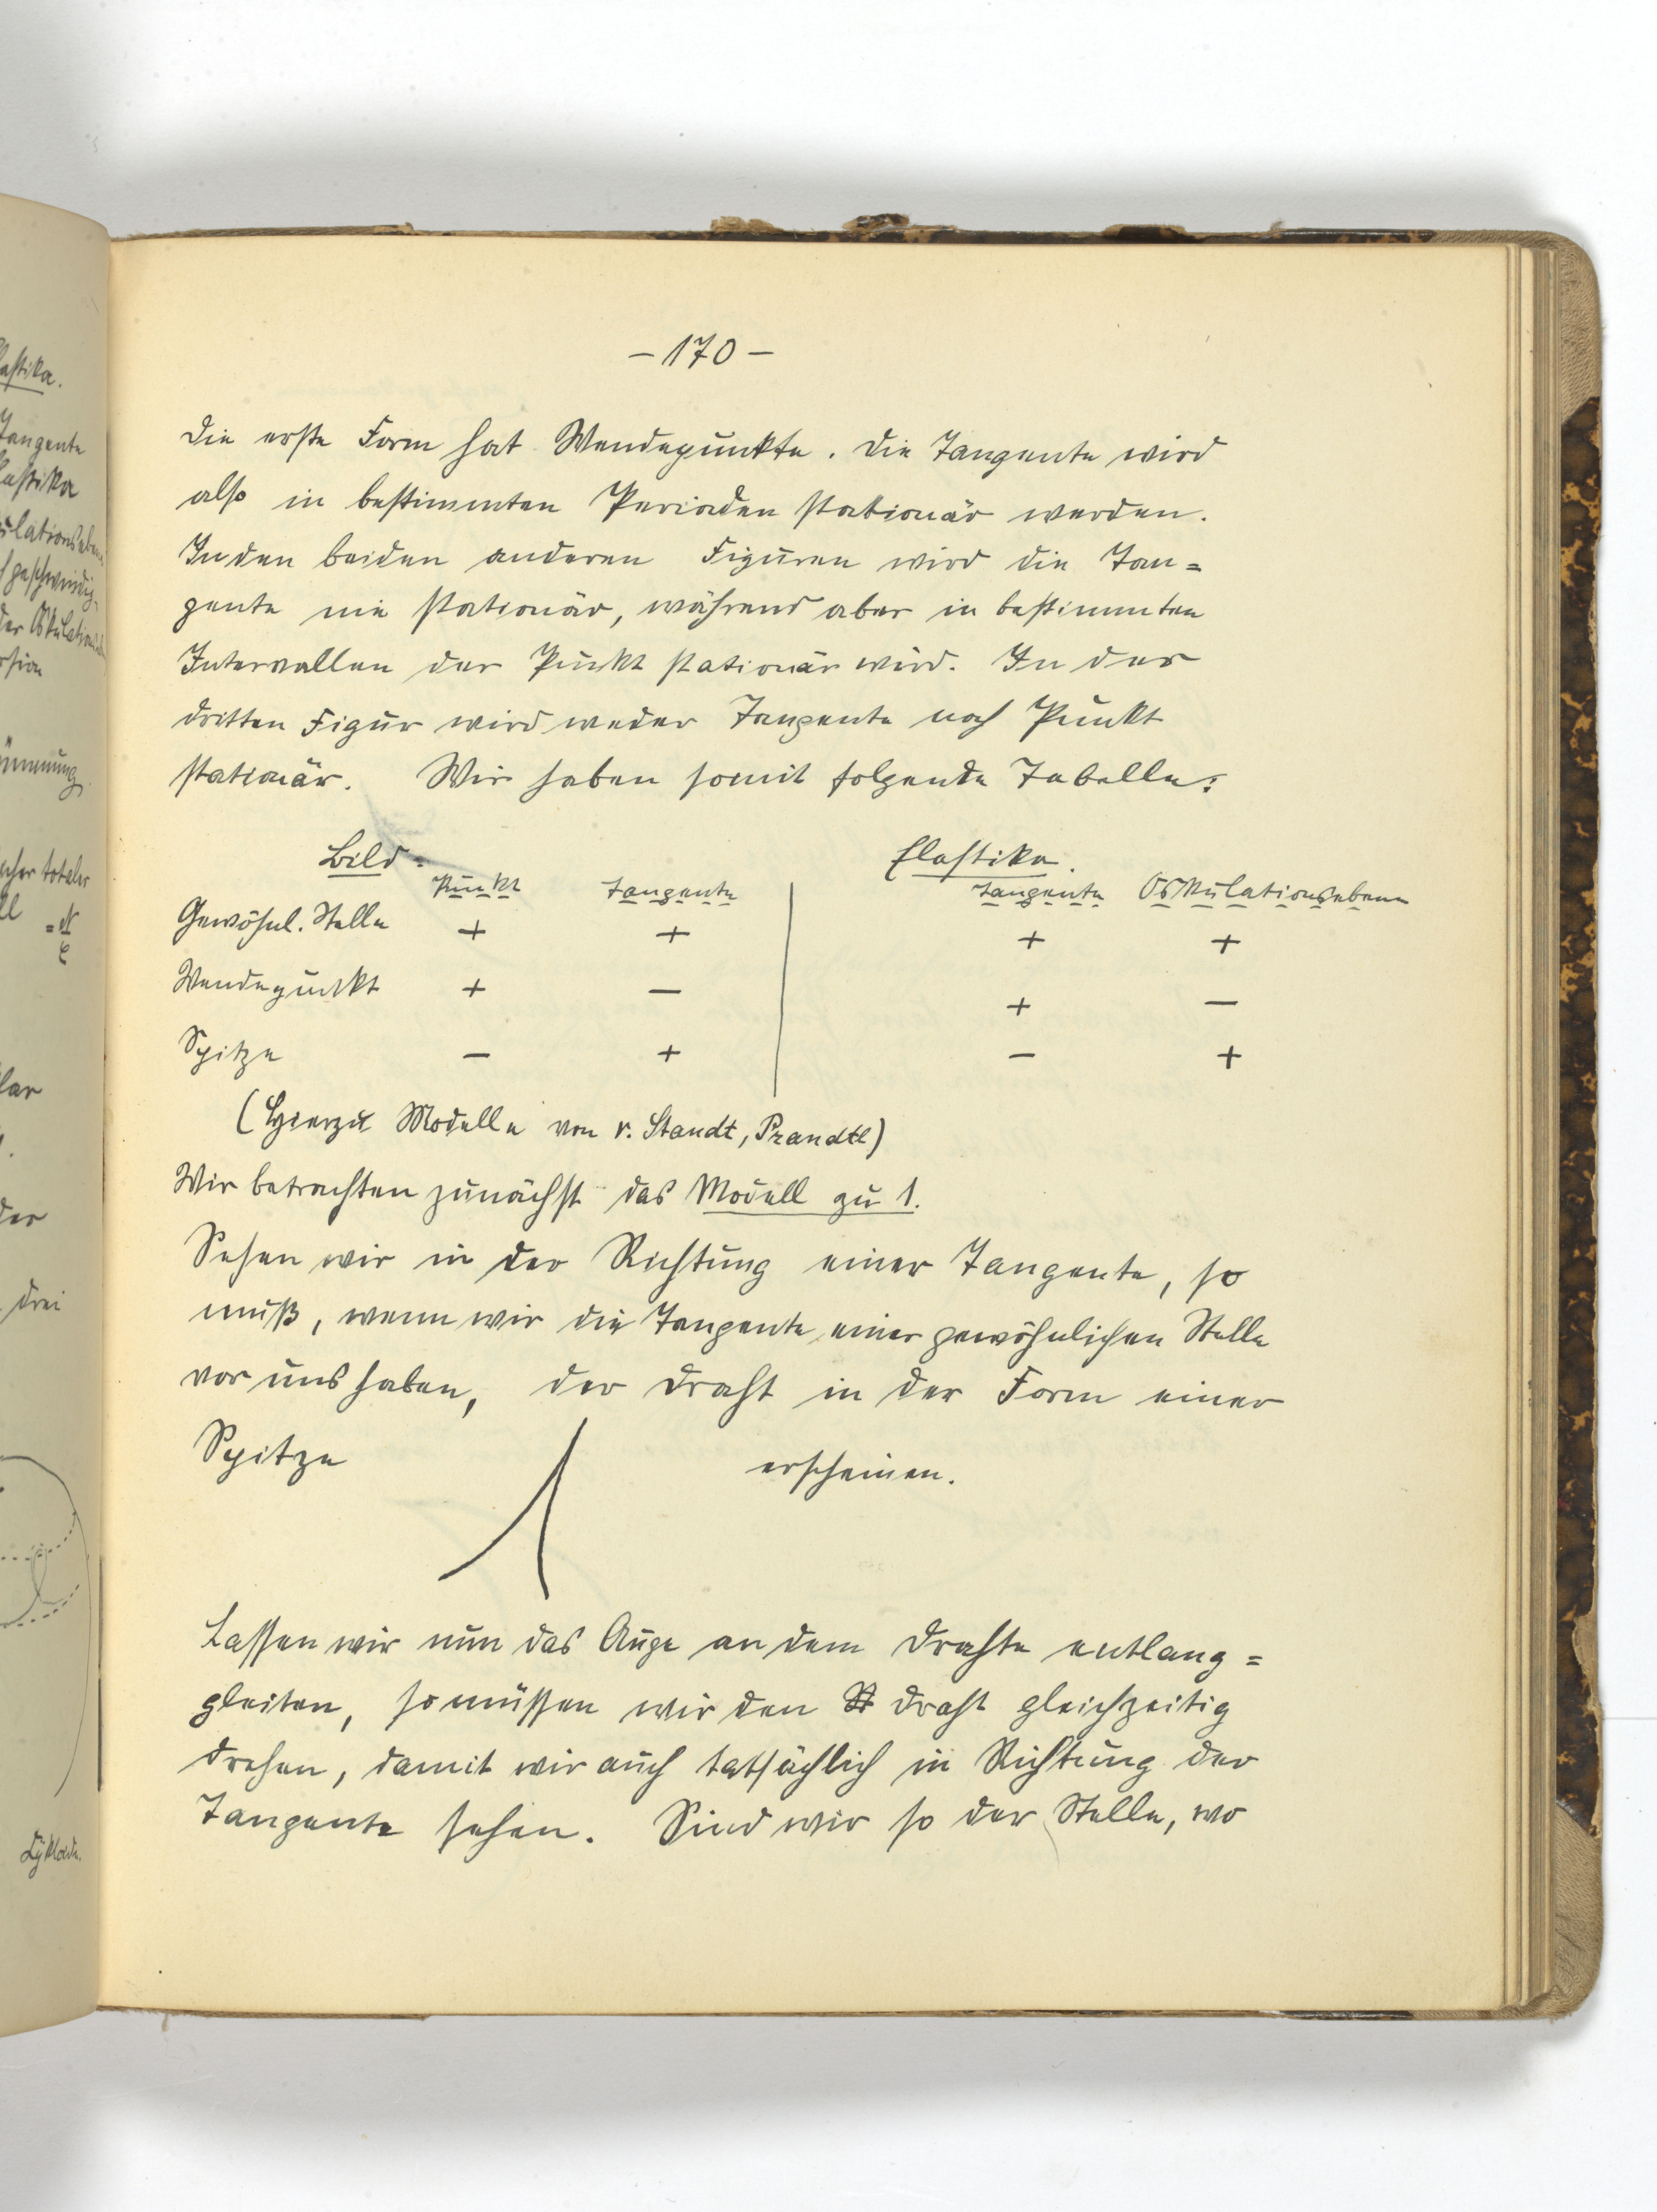 - 170 -
Die erste Form hat Wendepunkte. Die Tangente wird
also in bestimmten Perioden stationär werden.
In den beiden anderen Figuren wird die Tan=
gente nie stationär, während aber in bestimmten
Intervallen der Punkt stationär wird. In der
dritten Figur wird weder Tangente noch Punkt
stationär. Wir haben somit folgende Tabelle:
Bild. Elastika.
Punkt Tangente Tangente Oskulationsebene
Gewöhnl. Stelle + + + +
Wendepunkt + − + −
Spitze − + − +
(Hierzu Modelle von v. Staudt, Prandtl)
Wir betrachten zunächst das Modell zu 1.
Sehen wir in der Richtung einer Tangente, so
muß, wenn wir die Tangente einer gewöhnlichen Stelle
vor uns haben, der Draht in der Form einer
Spitze erscheinen.
Lassen wir nun das Auge an dem Drahte entlang=
gleiten, so müssen wir den Draht gleichzeitig
drehen, damit wir auch tatsächlich in Richtung der
Tangente sehen. Sind wir so der Stelle, wo
astika.
Tangente
lastika
ulationsebene
geschwindig-
der Oskulations
rsion
ümmung
cher totaler
lar
der
drei
Zykloide.